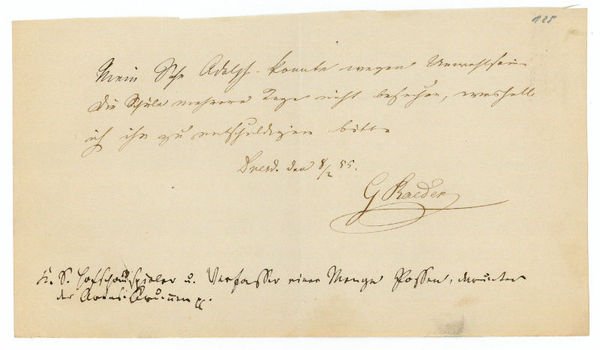 125
Mein Sohn Adolph konnte wegen Unwohlsein
die Schule mehrere Tage nicht besuchen, weshalb
ich ihn zu entschuldigen bitte
Dresd. den 8/2 55.
G Raeder
K. S. Hofschauspieler u. Verfasser einer Menge Possen, darunter
der